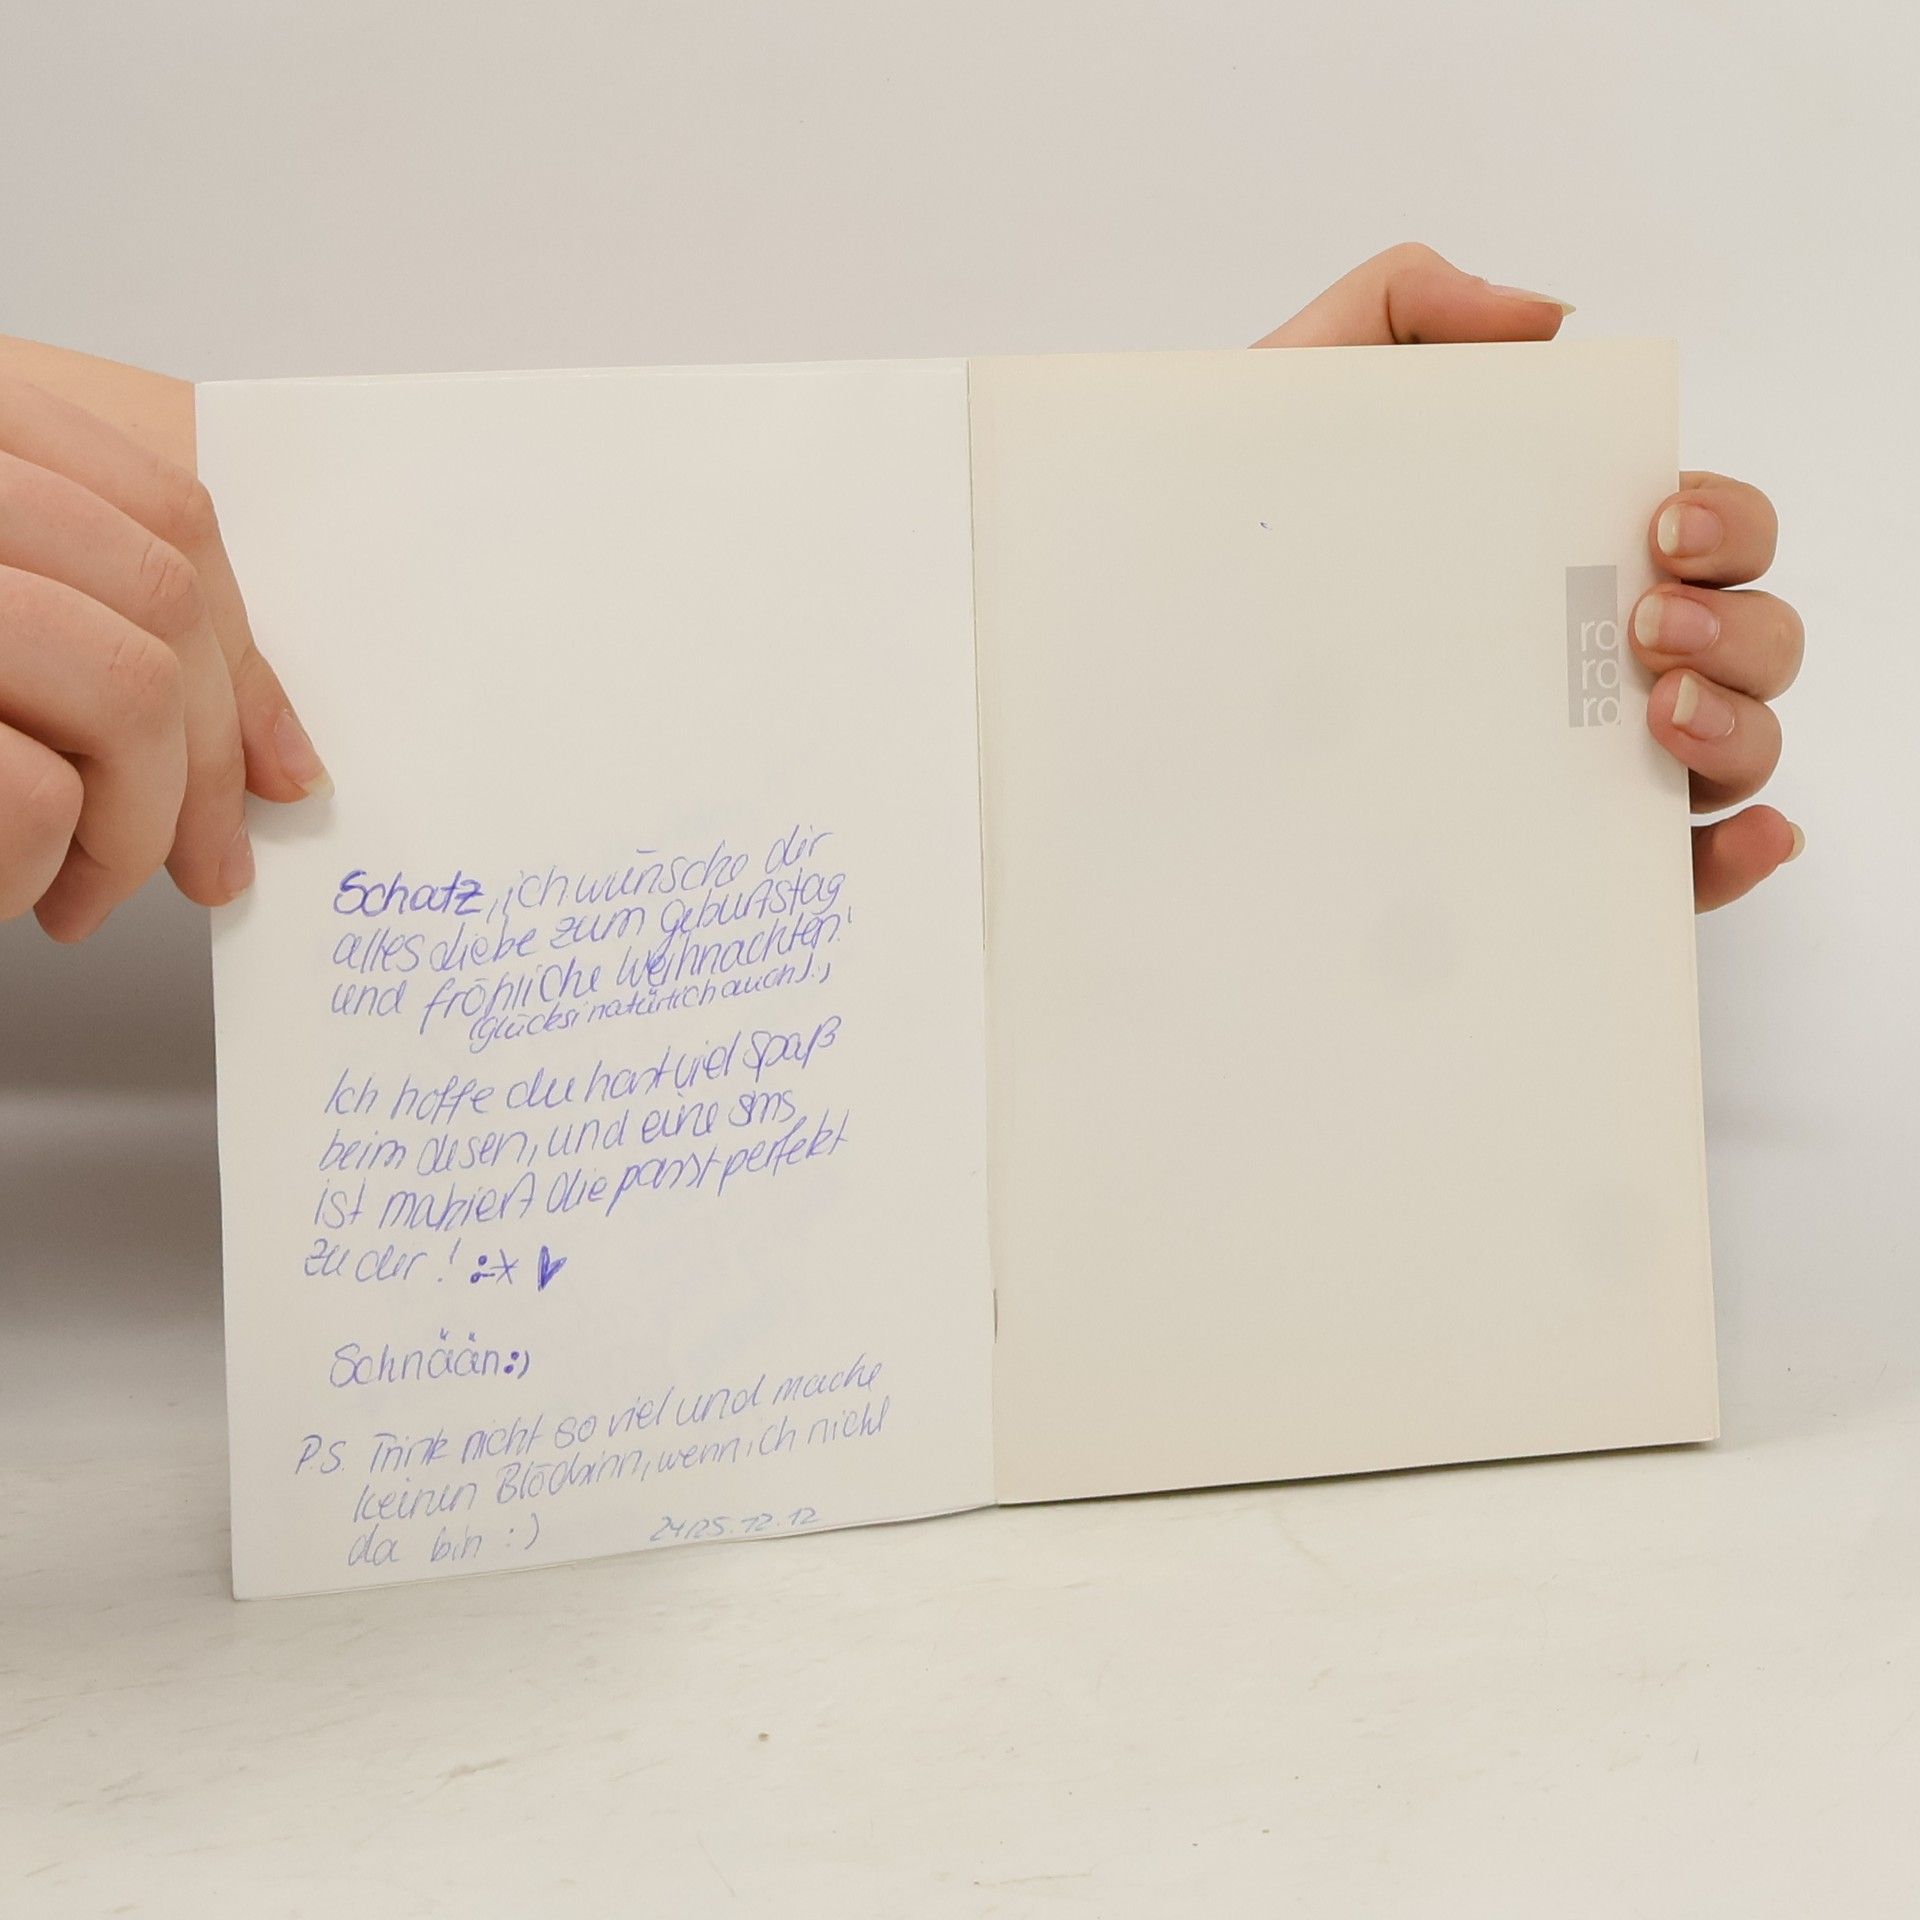 Schatz, ich wünsche dir
alles Liebe zum Geburtstag
und fröhliche Weihnachten!
(glücksi natürlich auch) :)
Ich hoffe du hast viel Spaß
beim Lesen, und eine SMS
ist makiert die passt perfekt
zu dir! :-* ♥
Schnään :)
P.S. Trink nicht so viel und mache
keinen Blödsinn, wenn ich nicht
da bin :)
24/25.12.12
ro
ro
ro